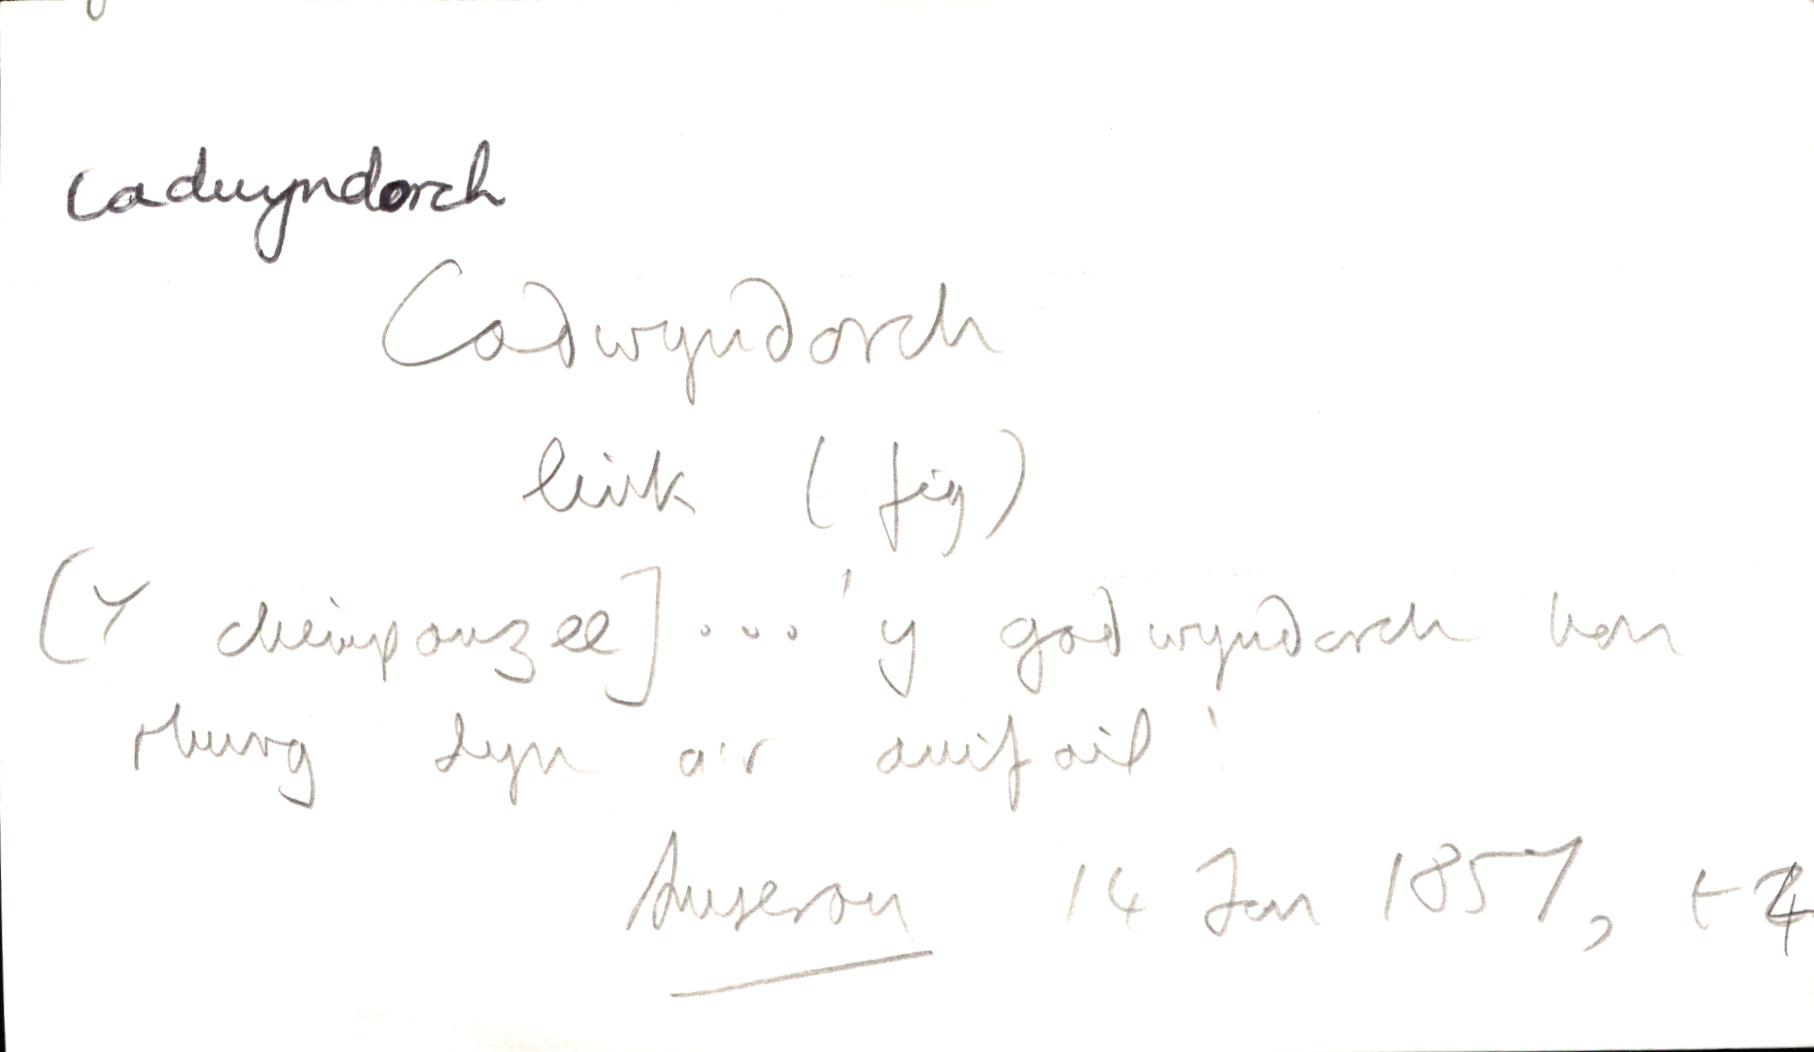 cadwyndorch
Cadwyndorch
link (fig)
[Y chimpanzee]...'y gadwyndorch hon
rhwng dyn a'r anifail'
Amserau 14 Jan 1857, t 4